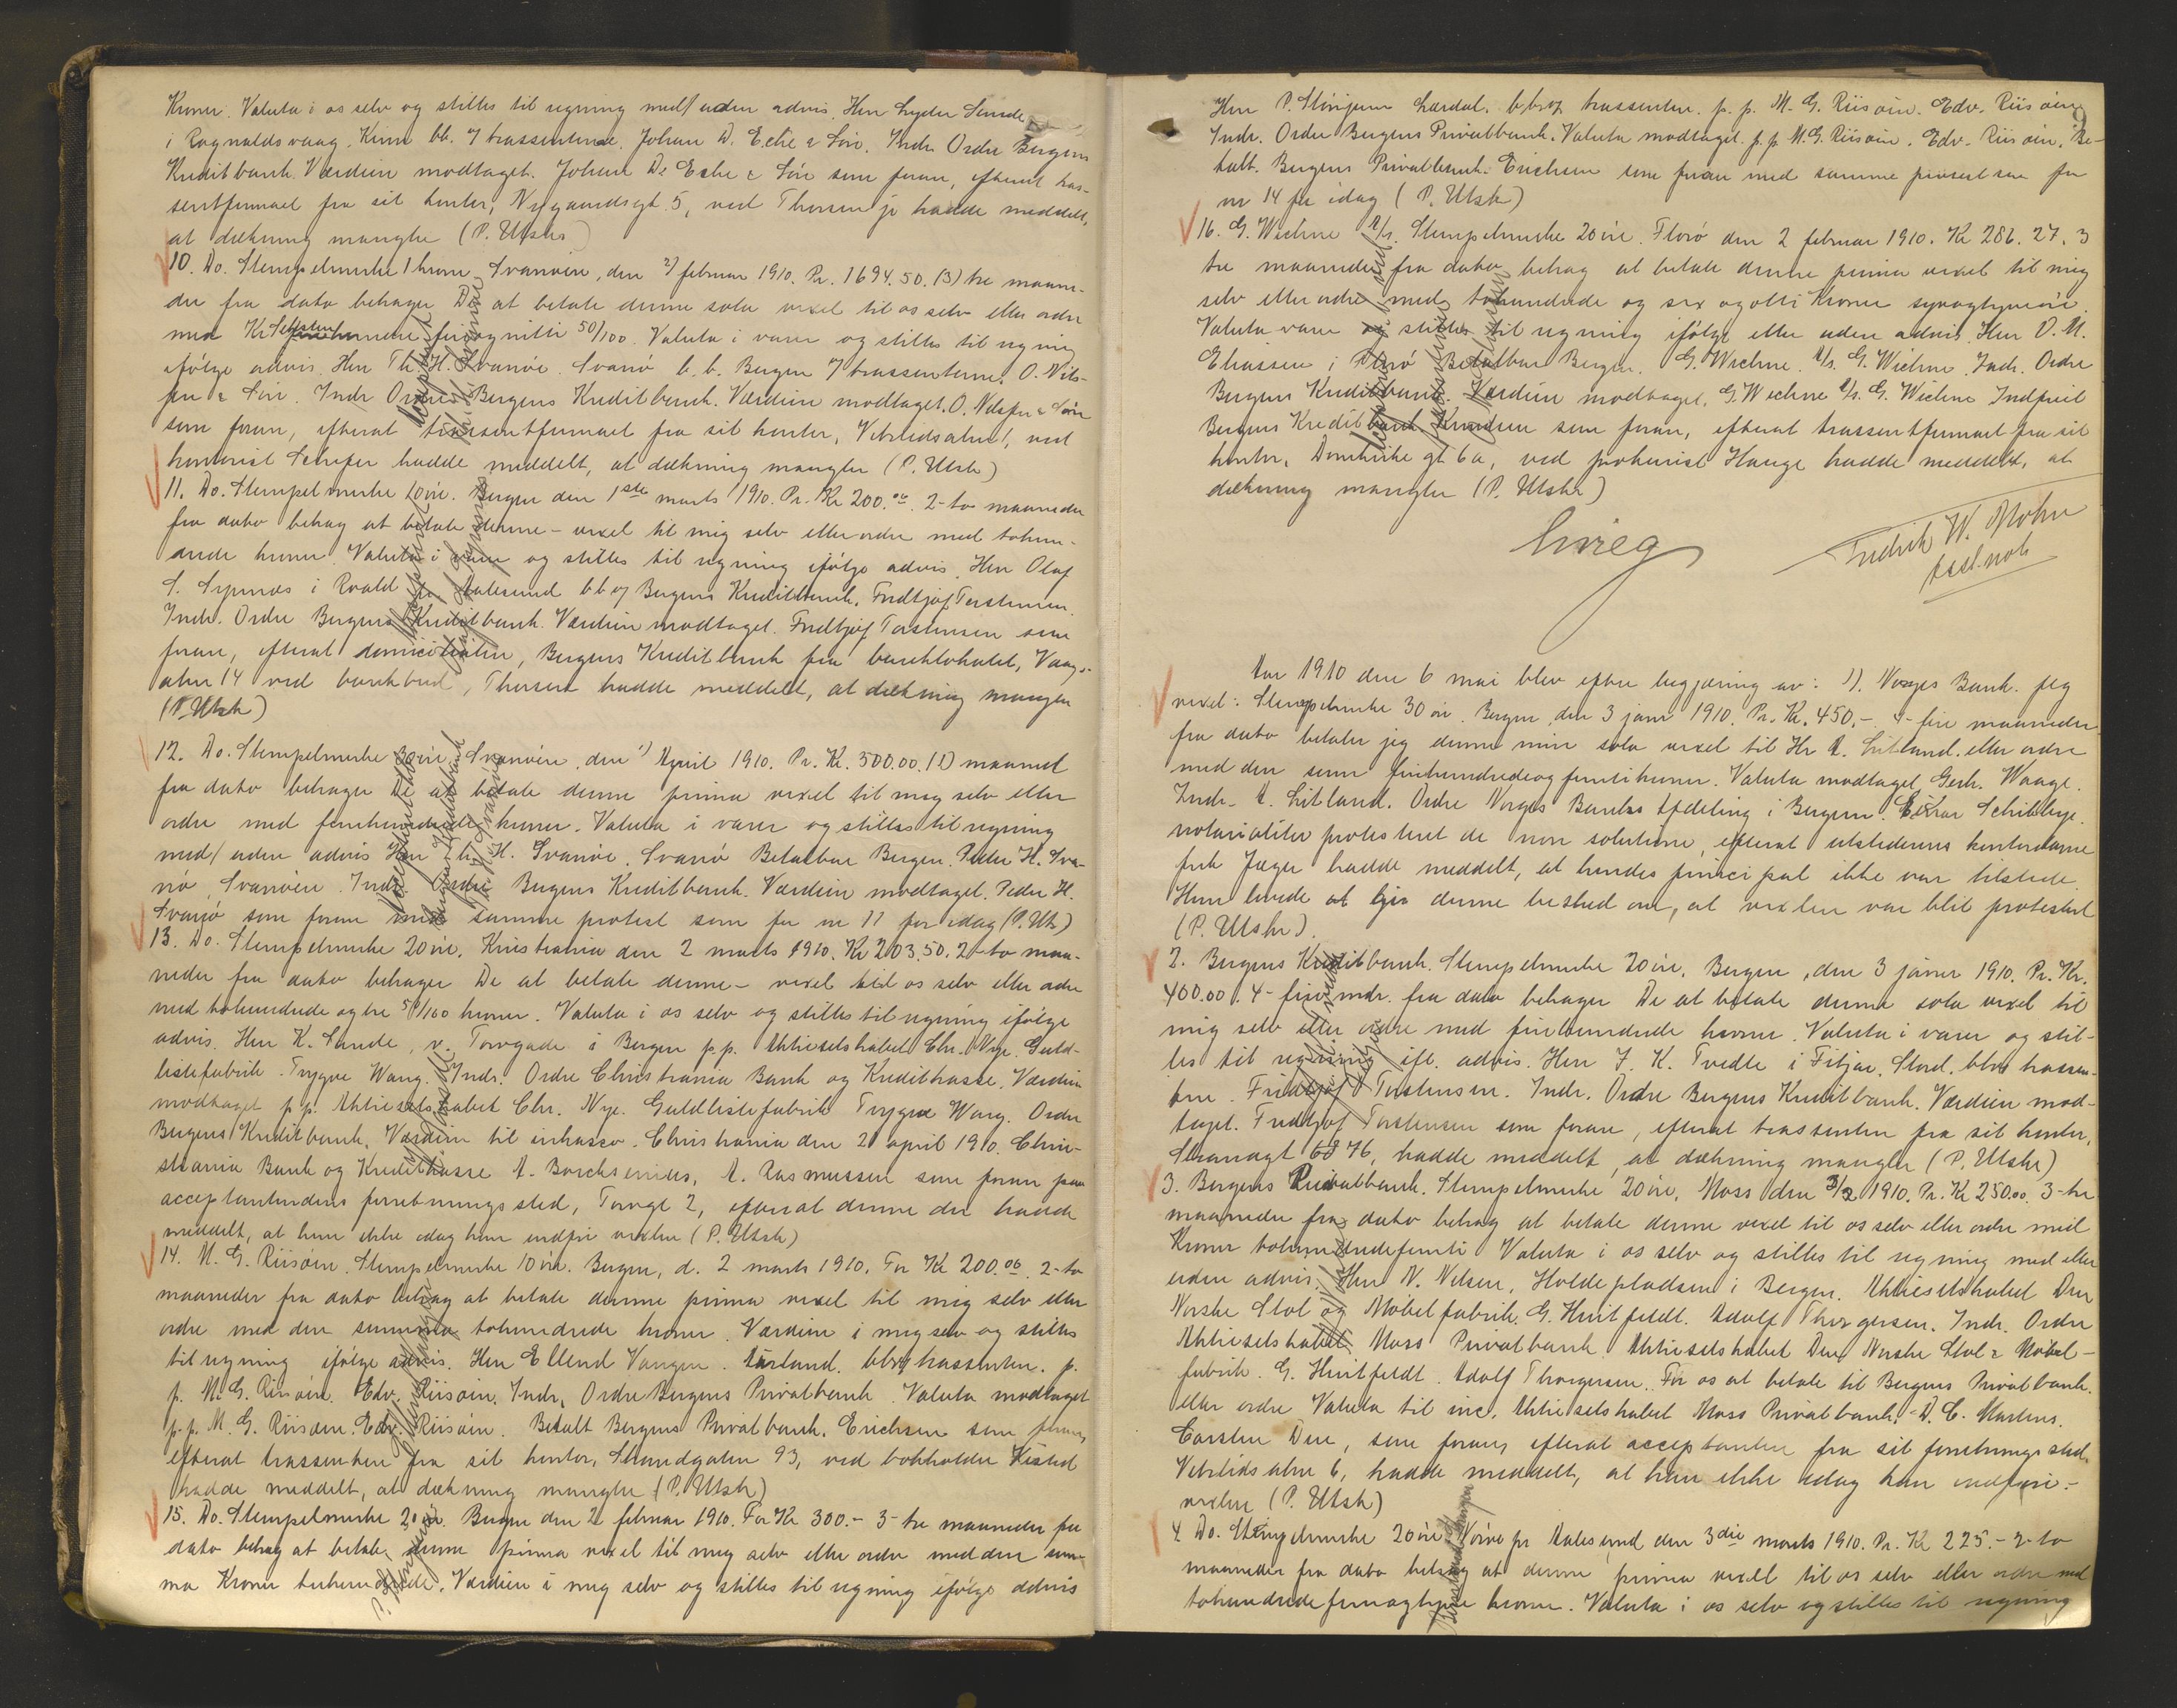 Kroner. Valuta i os selv og stilles til regning med/uden advis. Herr Lyder
i Rognaldsvaag. Kinn bb. of trassenterne. Johan D. Eche & Søn. Indr. Ordre Bergens
Kreditbank. Værdien modtaget. Johan D. Eche & Søn som foran, efterat tras-
sentfirmaet fra sit kontor, Nygaardsgt. 5, ved Thorsen jr hadde meddelt,
at dækning mangler (P. Utskr)
10. Do. Stempelmerke 1 krone. Svanøen, den 2/ februar 1910. Pr. 1694.50. (3) tre maane-
der fra dato behager De at betale denne sola vexel til os selv eller ordre
med Kr. Seksten firognitti 50/100. Valuta i varer og stilles til regning
ifølge advis. Herr Th. H. Svanøe. Svanø b.b. Bergen of trassenterne. O. Nils-
sen & Søn. Indr. Ordre Bergens Kreditbank. Værdien modtaget. O. Nilssen & Søn
som foran, efterat trassentfirmaet fra sit kontor, Vetrlidsalm. 1, ved
kontorist hadde meddelt, at dækning mangler (P. Utskr)
11. Do. Stempelmerke 20 øre. Bergen den 1ste marts 1910. Pr. Kr 200.00. 2-to maaneder
fra dato behag at betale denne - vexel til mig selv eller ordre med tohun-
drede kroner. Valuta i varer og stilles til regning ifølge advis. Herr Olaf
S. Sypnæs i Roald pr. Aalesund b b of Bergens Kreditbank. Fridtjof Torstensen.
Indr. Ordre Bergens Kreditbank. Værdien modtaget. Fridtjof Torstensen som
foran, efterat domiciliaten, Bergens Kreditbank fra banklokalet, Vaags-
alm 14 ved bankbud, Thorsen hadde meddelt, at dækning mangler
(P. Utskr)
12. Do. Stempelmerke 30 øre. Svanøen, den 1/ April 1910. Pr. K. 500.00. (1) maaned
fra dato behager De at betale denne prima vexel til mig selv eller
ordre med femhundrede kroner. Valuta i varer og stilles til regning
med/uden advis Herr Th. H. Svanøe. Svanø Betalbar Bergen. Peder H. Sva-
nø, Svanøen. Indr. Ordre Bergens Kreditbank. Værdien modtaget. Peder H.
Svanø som foran med samme protest som for nr 11 for idag (P. Utskr)
13. Do. Stempelmerke 20 øre. Kristiania den 2 marts 1910. Kr 203.50. 2-to maa-
neder fra dato behager De at betale denne - vexel til os selv eller ordre
med tohundrede og tre 50/100 kroner. Valuta i os selv og stilles til regning ifølge
advis. Herr K. Sande, v. Torvgade i Bergen p.p. Aktieselskabet Chr. Nye. Guld-
listefabrik. Trygve Wang. Indr. Ordre Christiania Bank og Kreditkasse. Værdien
modtaget p.p. Aktieselskabet Chr. Nye. Guldlistefabrik Trygve Wang. Ordre
Bergens Kreditbank. Værdien til inkasso. Christiania den 21 april 1910. Chri-
stiania Bank og Kreditkasse A. Borchsenius, A. Rasmussen som foran paa
acceptantindens forretningssted, Torvgt 2, efterat denne der hadde
meddelt, at hun ikke idag kan indfri vexlen (P. Utskr)
14. M. G. Riisøen. Stempelmerke 10 øre. Bergen, d. 2 marts 1910. For Kr 200.00. 2-to
maaneder fra dato behag at betale denne prima vexel til mig selv eller
ordre med den summa tohundrede kroner. Værdien i mig selv og stilles
til regning ifølge advis. Herr Ellend Vangen. Aurland. bb of trassenten. p.
p. M. G. Riisøen. Edv. Riisøen. Indr. Ordre Bergens Privatbank. Valuta modtaget
p.p. M. G. Riisøen. Edv. Riisøen. Betalt Bergens Privatbank. Erichsen som foran,
efterat trassenten fra sit kontor, Strandgaten 93, ved bokholder
hadde meddelt, at dækning mangler (P. Utskr)
15. Do. Stempelmerke 20 øre. Bergen den 2 februar 1910. For Kr 300.- 3-tre maaneder fra
dato behag at betale denne prima vexel til mig selv eller ordre med den sum-
ma Kroner trehundrede. Værdien i mig selv og stilles til regning ifølge advis
9
Herr P. Lærdal. b b of trassenten. p. p. M. G. Riisøen. Edv. Riisøen
Indr. Ordre Bergens Privatbank. Valuta modtaget. p. p. M. G. Riisøen. Edv. Riisøen. Be-
talt. Bergens Privatbank. Erichsen som foran med samme protest som for
nr 14 for idag (P. Utskr)
16. G. Wichne A/s. Stempelmerke 20 øre. Florø den 2 februar 1910. Kr 286.27. 3
tre maaneder fra dato behag at betale denne prima vexel til mig
selv eller ordre med tohundrede og sex og otti Kroner syvogtyveøre.
Valuta varer og stilles til regning ifølge eller uden advis. Herr O. M.
Eliassen i Florø Betalbar Bergen. G. Wichne A/s. G. Wichne. Indr. Ordre
Bergens Kreditbank. Værdien modtaget. G. Wichne A/s. G. Wichne Indfriet
Bergens Kreditbank Knudsen som foran, efterat trassentfirmaet fra sit
kontor, Domkirke gt 6a, ved prokurist Hauge hadde meddelt, at
dækning mangler (P. Utskr)
Fredrik W. Mohn
Aar 1910 den 6 mai blev efter begjæring av: 1). Norges Bank. flg
vexel: Stempelmerke 30 øre. Bergen, den 3 janr 1910. Pr. Kr. 450.- 4-fire maaneder
fra dato betaler jeg denne min sola vexel til Hr A. Litland. eller ordre
med den sum firehundredeogfemtikroner. Valuta modtaget. Gerh. Waage.
Indr. A. Litland. Ordre Norges Banks Afdeling i Bergen. Einar Schibbye
notarialiter protesteret de non solutione, efterat utstederens kontordame
frk Jæger hadde meddelt, at hendes principal ikke var tilstede.
Hun lovede at gi denne besked om, at vexlen var blit protestert
(P. Utskr).
2. Bergens Kreditbank. Stempelmerke 20 øre. Bergen, den 3 januar 1910. Pr. Kr.
400.00. 4-fire mdr. fra dato behager De at betale denne sola vexel til
mig selv eller ordre med firehundrede kroner. Valuta i varer og stil-
les til regning ifl. advis. Herr J. K. Tvedte i Fitjar, Stord. bb of trassen-
ten. Fridtjof Torstensen. Indr. Ordre Bergens Kreditbank. Værdien mod-
taget. Fridtjof Torstensen som foran, efterat trassenten fra sit kontor,
Strandgt 76, hadde meddelt at dækning mangler (P. Utskr)
3. Bergens Privatbank. Stempelmerke 20 øre. Moss den 3/2 1910. Pr. Kr 250.00. 3-tre
maaneder fra dato behag at betale denne vexel til os selv eller ordre med
Kroner tohundredefemti Valuta i os selv og stilles til regning med eller
uden advis. Herr N. Nilsen, Holdepladsen i Bergen. Aktieselskabet Den
Norske Stol og Møbelfabrik. G. Huitfeldt. Adolf Thorgersen. Indr. Ordre
Aktieselskabet Moss Privatbank. Aktieselskabet Den Norske Stol & Møbel-
fabrik. G. Huitfeldt. Adolf Thorgersen. For os at betale til Bergens Privatbank.
eller ordre Valuta til inc. Aktieselskabet Moss Privatbank.
Carsten Due, som foran, efterat acceptanten fra sit forretningssted,
Vetrlids alm 6, hadde meddelt, at han ikke idag kan indfri
vexlen (P. Utskr)
4. Do. Stempelmerke 20 øre. pr Aalesund den 3die marts 1910. Pr. Kr 225.- 2-to
maaneder fra dato behag at denne prima vexel til os selv eller ordre med
tohundredefemogtyve kroner. Valuta i os selv og stilles til regning